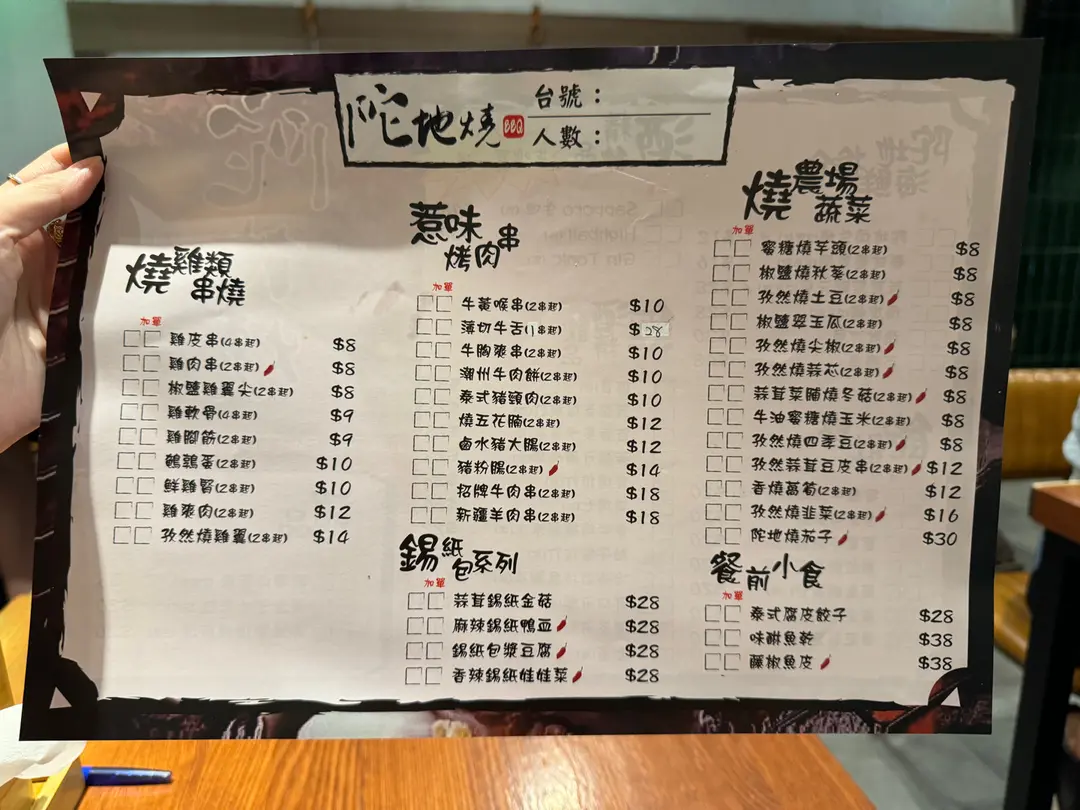 陀地燒 BBQ
台號：
人數：
燒雞類串燒
加單
雞皮串(4串起) $8
雞肉串(2串起) $8
椒鹽雞翼尖(2串起) $8
雞軟骨(4串起) $9
雞腳筋(2串起) $9
鵪鶉蛋(2串起) $10
鮮雞腎(2串起) $10
雞爽肉(2串起) $12
孜然燒雞翼(2串起) $14
惹味烤肉串
加單
牛黃喉串(2串起) $10
薄切牛舌(1串起) $28
牛胸爽串(2串起) $10
潮州牛肉餅(2串起) $10
泰式豬頸肉(2串起) $10
燒五花腩(2串起) $12
鹵水豬大腸(2串起) $12
豬粉腸(2串起) $14
招牌牛肉串(2串起) $18
新疆羊肉串(2串起) $18
錫紙包系列
加單
蒜茸錫紙金菇 $28
麻辣錫紙鴨血 $28
錫紙包漿豆腐 $28
香辣錫紙娃娃菜 $28
燒農場蔬菜
加單
蜜糖燒芋頭(2串起) $8
椒鹽燒秋葵(2串起) $8
孜然燒土豆(2串起) $8
椒鹽翠玉瓜(2串起) $8
孜然燒尖椒(2串起) $8
孜然燒蒜芯(2串起) $8
蒜茸菜脯燒冬菇(2串起) $8
牛油蜜糖燒玉米(2串起) $8
孜然燒四季豆(2串起) $8
孜然蒜茸豆皮串(2串起) $12
香燒萵筍(2串起) $12
孜然燒韭菜(2串起) $16
陀地燒茄子 $30
餐前小食
加單
泰式腐皮餃子 $28
味醂魚乾 $38
藤椒魚皮 $38